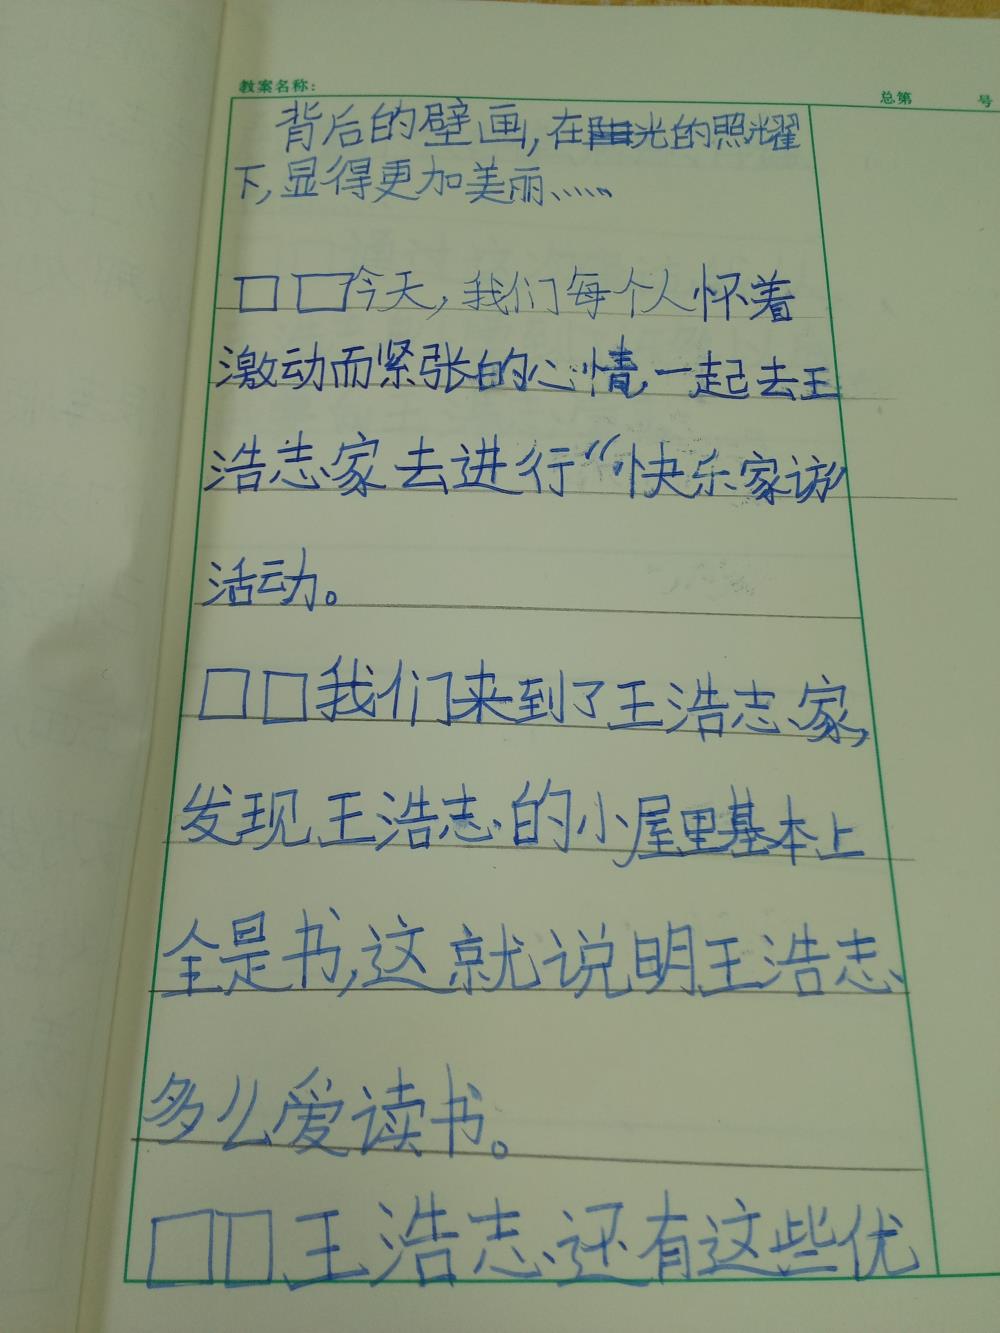 教案名称:
总第 号
背后的壁画,在阳光的照耀
下,显得更加美丽……
□□今天,我们每个人怀着
激动而紧张的心情,一起去王
浩志家去进行“快乐家访”
活动。
□□我们来到了王浩志家,
发现王浩志的小屋里基本上
全是书,这就说明王浩志
多么爱读书。
□□王浩志还有这些优